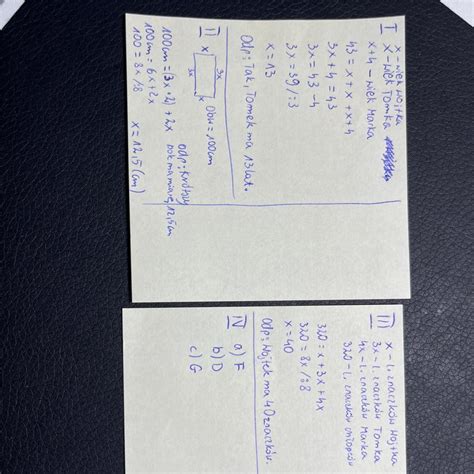 I
x - wiek Wojtka
x - wiek Tomka
x+4 - wiek Marka
43 = x + x + x+4
3x+4 = 43
3x = 43 - 4
3x = 39 /:3
x = 13
Odp: Tak, Tomek ma 13 lat.
II
x
3x
3x
x
Obw = 100cm
100cm = (3x·2) + 2x
100cm = 6x + 2x
100 = 8x /:8
x = 12,5 (cm)
odp: Krótszy
bok ma miarę 12,5cm
III
x - l. znaczków Wojtka
3x - l. znaczków Tomka
4x - l. znaczków Marka
320 - l. znaczków chłopców
320 = x + 3x + 4x
320 = 8x /:8
x = 40
Odp: Wojtek ma 40 znaczków.
IV
a) F
b) D
c) G